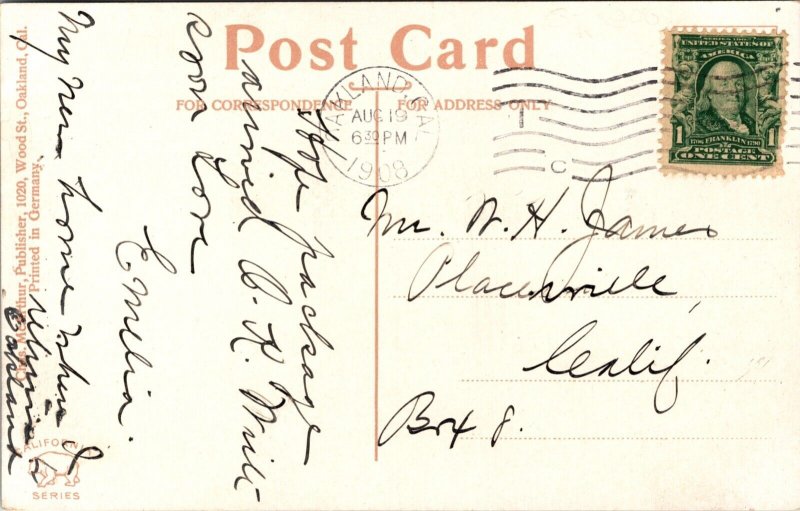 Post Card
FOR CORRESPONDENCE
FOR ADDRESS ONLY
OAKLAND, CAL.
AUG 19
630 PM
1908
C
SERIES 1902
UNITED STATES OF
AMERICA
1
1
1706 FRANKLIN 1790
POSTAGE
ONE CENT
Mr. W. H. James
Placerville,
Calif.
Box 8.
Hope package
arrived O.K. Will
soon Love
Emelia.
My home where I
Oakland
Chas. McArthur, Publisher, 1020, Wood St., Oakland, Cal.
Printed in Germany.
CALIFORNIA
SERIES